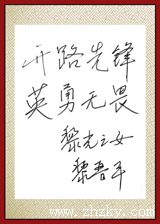 开路先锋
英勇无畏
黎光之女
黎晋平
www.zhzky.com